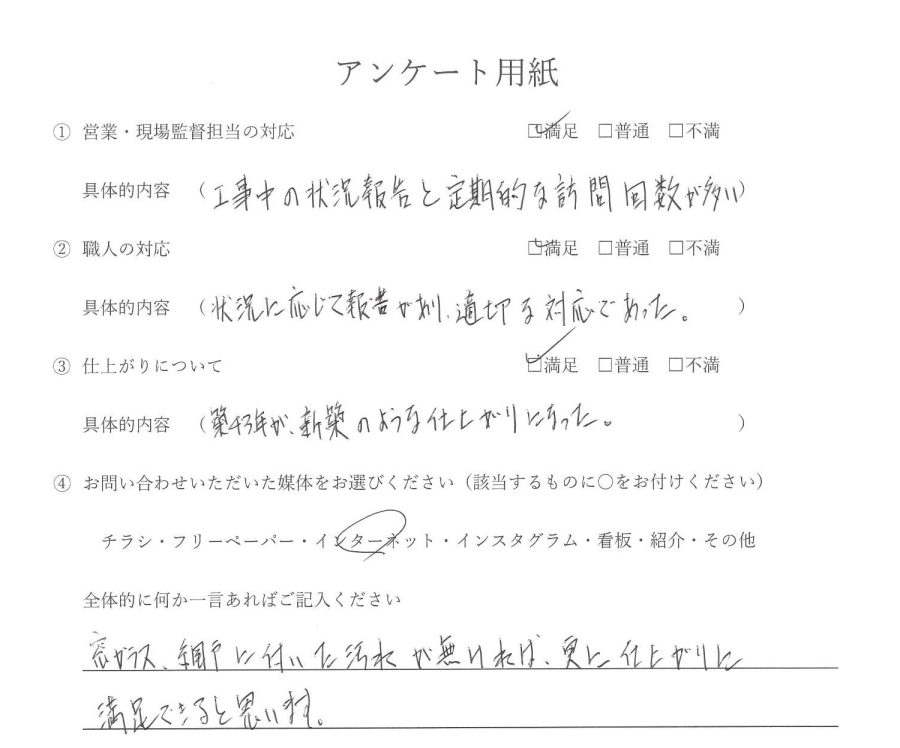 アンケート用紙
① 営業・現場監督担当の対応 ☑満足 □普通 □不満
具体的内容 （工事中の状況報告と定期的な訪問回数が多い）
② 職人の対応 ☑満足 □普通 □不満
具体的内容 （状況に応じて報告があり、適切な対応であった。）
③ 仕上がりについて ☑満足 □普通 □不満
具体的内容 （築43年が、新築のような仕上がりになった。）
④ お問い合わせいただいた媒体をお選びください（該当するものに〇をお付けください）
チラシ・フリーペーパー・インターネット・インスタグラム・看板・紹介・その他
全体的に何か一言あればご記入ください
窓ガラス、網戸に付いた汚れが無ければ、更に仕上がりに
満足できると思います。